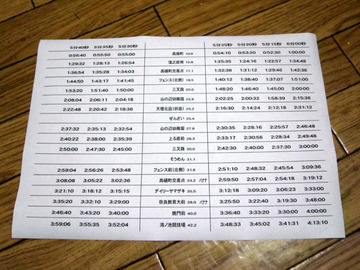 5分40秒 5分35秒 5分30秒 5分25秒 5分20秒 5分15秒 6分00秒
0:56:40 0:55:50 0:55:00 高樋町 10.0 0:54:10 0:53:20 0:52:30 1:00:00
1:29:32 1:28:13 1:26:54 窪之庄南 15.8 1:25:35 1:24:16 1:22:57 1:34:48
1:36:54 1:35:28 1:34:03 高樋町交差点 17.1 1:32:38 1:31:12 1:29:46 1:42:36
1:44:50 1:43:17 1:41:45 フェンス 18.5 1:40:12 1:38:40 1:37:07 1:51:00
1:53:20 1:51:40 1:50:00 三叉路 20.0 1:48:20 1:46:40 1:45:00 2:00:00
2:08:04 2:06:11 2:04:18 山の辺幼稚園 22.6 2:02:25 2:00:32 1:58:38 2:15:36
2:22:48 2:20:42 2:18:36 天理 (折返) 25.2 2:16:30 2:14:24 2:12:18 2:31:12
ぜんざい
2:37:32 2:35:13 2:32:54 山の辺幼稚園 27.8 2:30:35 2:28:16 2:25:57 2:46:48
2:40:22 2:38:00 2:35:39 28.3 2:33:17 2:30:56 2:28:34 2:49:48
2:50:00 2:47:30 2:45:00 三叉路 30.0 2:42:30 2:40:00 2:37:30 3:00:00
そうめん 31.1
2:59:04 2:56:26 2:53:48 フェンス 31.6 2:51:10 2:48:32 2:45:54 3:09:36
3:08:08 3:05:22 3:02:36 高樋町交差点 33.2 バナナ 2:59:50 2:57:04 2:54:18 3:19:12
3:21:10 3:18:12 3:15:15 デイリーヤマザキ 35.5 3:12:18 3:09:20 3:06:23 3:33:00
3:35:20 3:32:10 3:29:00 奈良教育大前 38.0 バナナ 3:25:50 3:22:40 3:19:30 3:48:00
3:46:40 3:43:20 3:40:00 40.0 3:36:40 3:33:20 3:30:00 4:00:00
3:59:06 3:55:35 3:52:04 鴻ノ池競技場 42.2 3:48:33 3:45:02 3:41:31 4:13:10